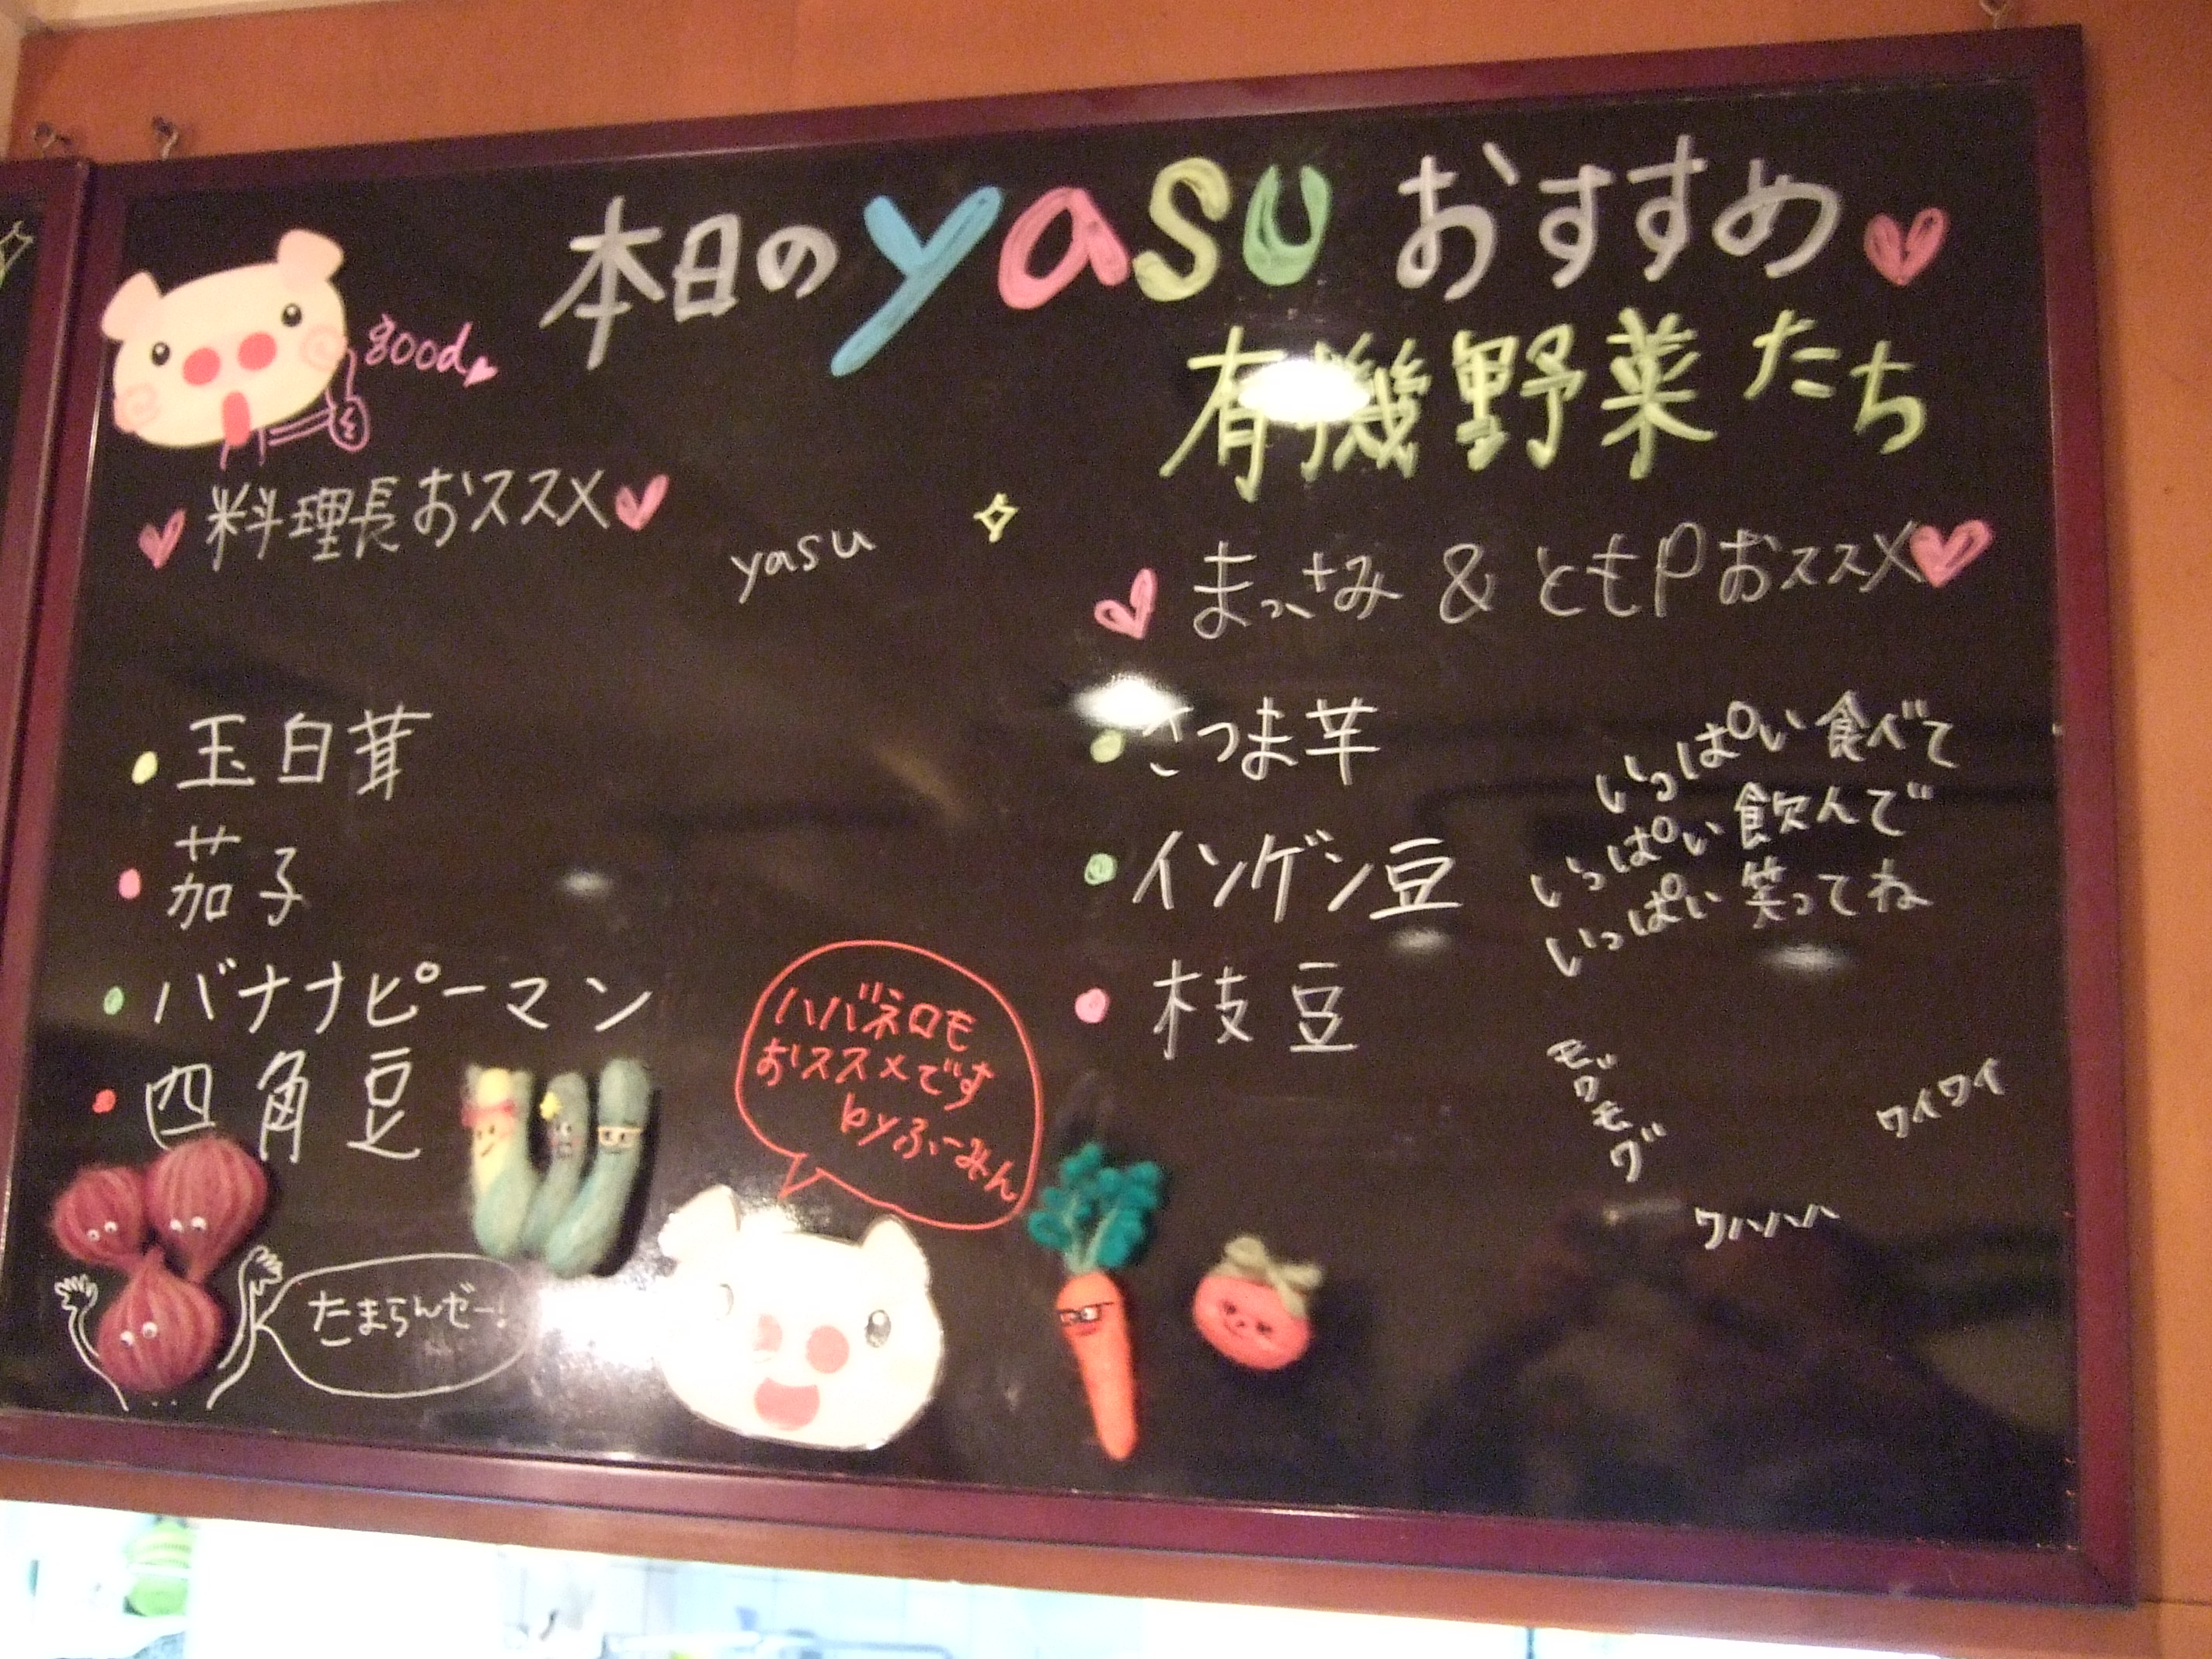 本日のyasuおすすめ
有機野菜たち
good
料理長おススメ
yasu
玉白茸
茄子
バナナピーマン
四角豆
まっさみ & ともPおススメ
さつま芋
インゲン豆
枝豆
いっぱい食べて
いっぱい飲んで
いっぱい笑ってね
モグモグ
ワイワイ
ワハハハ
ハバネロも
おススメです
byふーみん
たまらんぜー!